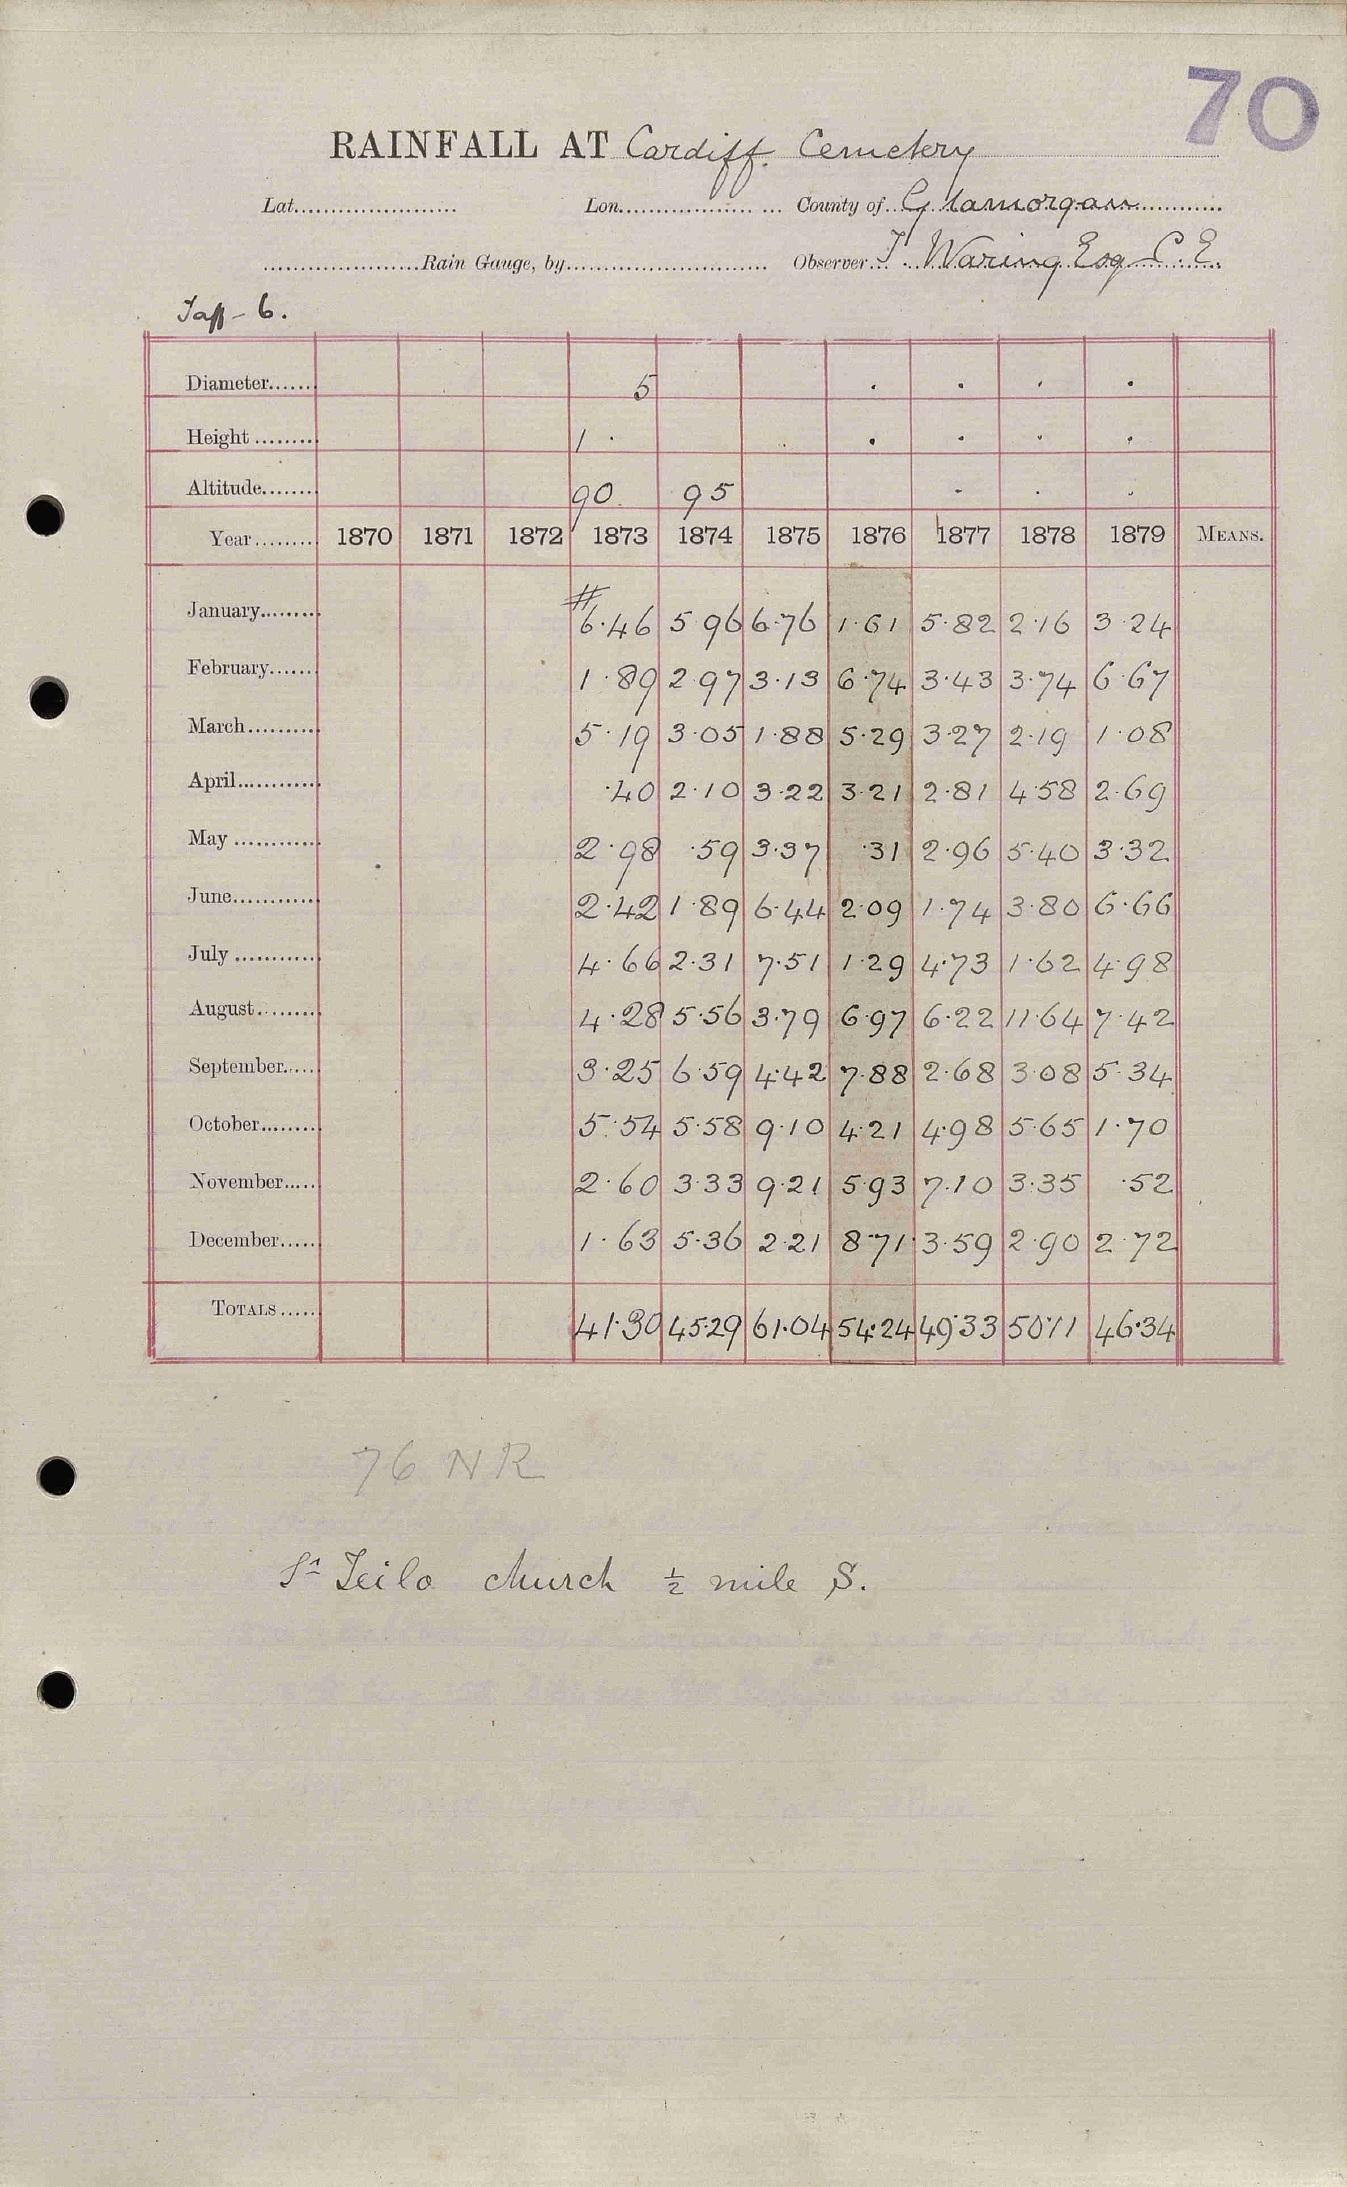 70
RAINFALL AT Cardiff Cemetery
Lat. Lon. County of Glamorgan
Rain Gauge, by Observer T. Waring Esq C. E.
Taff - 6.
Diameter 5 . . . .
Height 1 . . . . .
Altitude 90 95 . . .
Year 1870 1871 1872 1873 1874 1875 1876 1877 1878 1879 MEANS.
January # 6·46 5 96 6·76 1·61 5·82 2·16 3·24
February 1·89 2·97 3·13 6·74 3·43 3·74 6·67
March 5·19 3·05 1·88 5·29 3·27 2·19 1·08
April ·40 2·10 3·22 3·21 2·81 4·58 2·69
May 2·98 ·59 3·37 ·31 2·96 5·40 3·32
June 2·42 1·89 6·44 2·09 1·74 3·80 6·66
July 4·66 2·31 7·51 1·29 4·73 1·62 4·98
August 4·28 5·56 3·79 6·97 6·22 11·64 7·42
September 3·25 6·59 4·42 7·88 2·68 3·08 5·34
October 5·54 5·58 9·10 4·21 4·98 5·65 1·70
November 2·60 3·33 9·21 5·93 7·10 3·35 ·52
December 1·63 5·36 2·21 8·71 3·59 2·90 2·72
TOTALS 41·30 45·29 61·04 54·24 49·33 50·11 46·34
76 NR
St Teilo church ½ mile S.